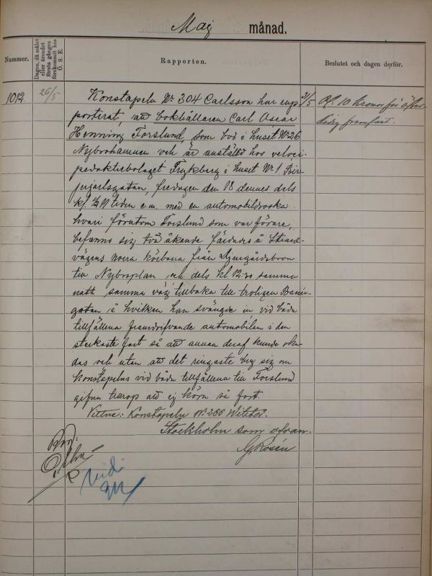 Maj månad.
Nummer.
Rapporten.
Beslutet och dagen derför.
1012
26/5
Konstapeln No 304 Carlsson har rap-
porterat, att bokhållaren Carl Oscar
Henning Forslund, som bod i huset No 26
Nybrohamnen och är anställd hos veloci-
pedaktiebolaget Frykberg i huset No 1 Bir-
jerjarlsgatan, fredagen den 18 dennes dels
kl. tiden e.m. med en automobildroska
hvari förutom Forslund som var förare,
befunno sig två åkande färdades å Strand-
vägens norra körbana från Djurgårdsbron
till Nybroplan, och dels kl 12.30 samma
natt samma väg tillbaka till
gatan å hvilken han svängde in vid båda
tillfällena framdrifvande automobilen i den
starkaste fart så att annan deraf kunde ska-
das och utan att det ringaste bry sig om
konstapelns vid båda tillfällena till Forslund
gifna tillrop att ej köra så fort.
Vittne: Konstapeln No 286
Stockholm som ofvan.
31/5
10 kronor för